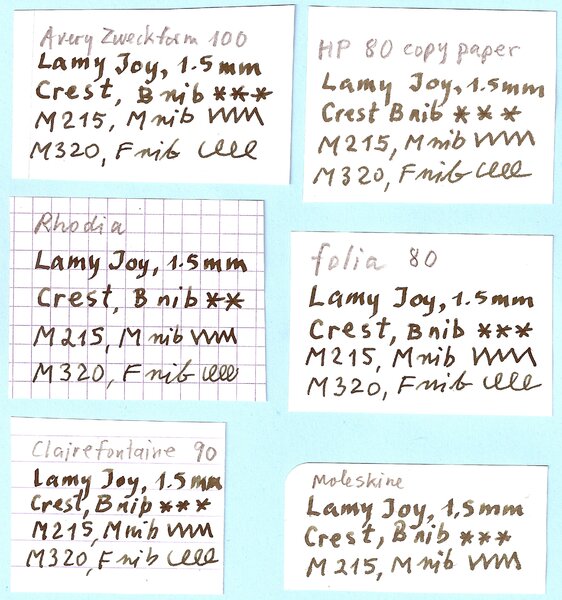 Avery Zweckform 100
Lamy Joy, 1.5mm
Crest, B nib ***
M215, M nib
M320, F nib
HP 80 copy paper
Lamy Joy, 1.5mm
Crest B nib ***
M215, M nib
M320, F nib
Rhodia
Lamy Joy, 1.5mm
Crest, B nib **
M215, M nib
M320, F nib
folia 80
Lamy Joy, 1.5mm
Crest, B nib ***
M215, M nib
M320, F nib
Clairefontaine 90
Lamy Joy, 1.5mm
Crest, B nib ***
M215, M nib
M320, F nib
Moleskine
Lamy Joy, 1,5mm
Crest, B nib ***
M215, M nib